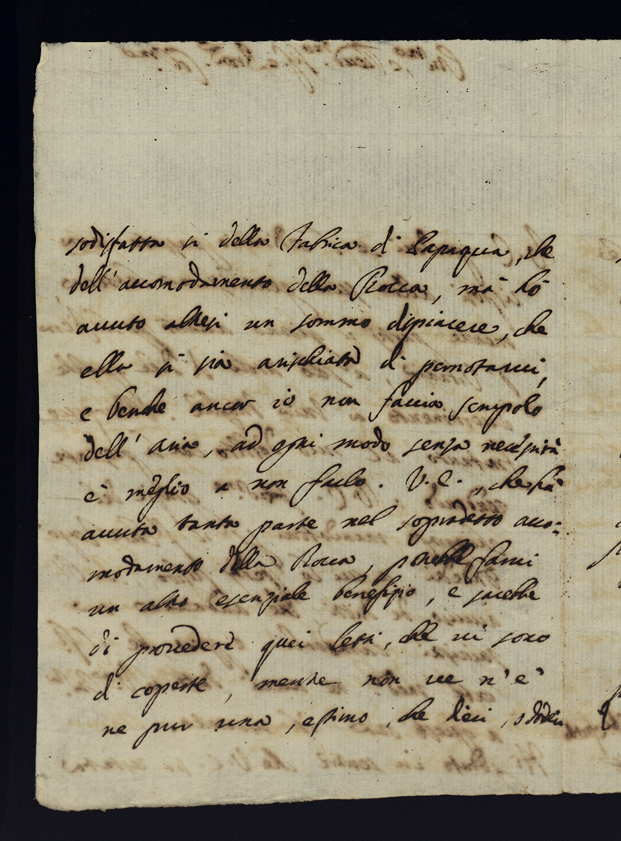 sodisfatta si della Fabrica di Capaqua, che
dell' accomodamento della Rocca, mà hò
auuto altresi un sommo dispiacere, che
ella si sia di pernotarui,
e benche ancor io non faccia scrupolo
dell' aria, ad ogni modo senza necessità
è meglio a non farlo. V. E., che hà
auuta tanta parte nel sopradetto acco-
modamento della Rocca, potrebbe farui
un altro essenziale benefizio, e sarebbe
di prouedere quei letti, che ui sono
di coperte, mentre non ue n'è
ne pur una, e stimo, che dieci, ò dodici